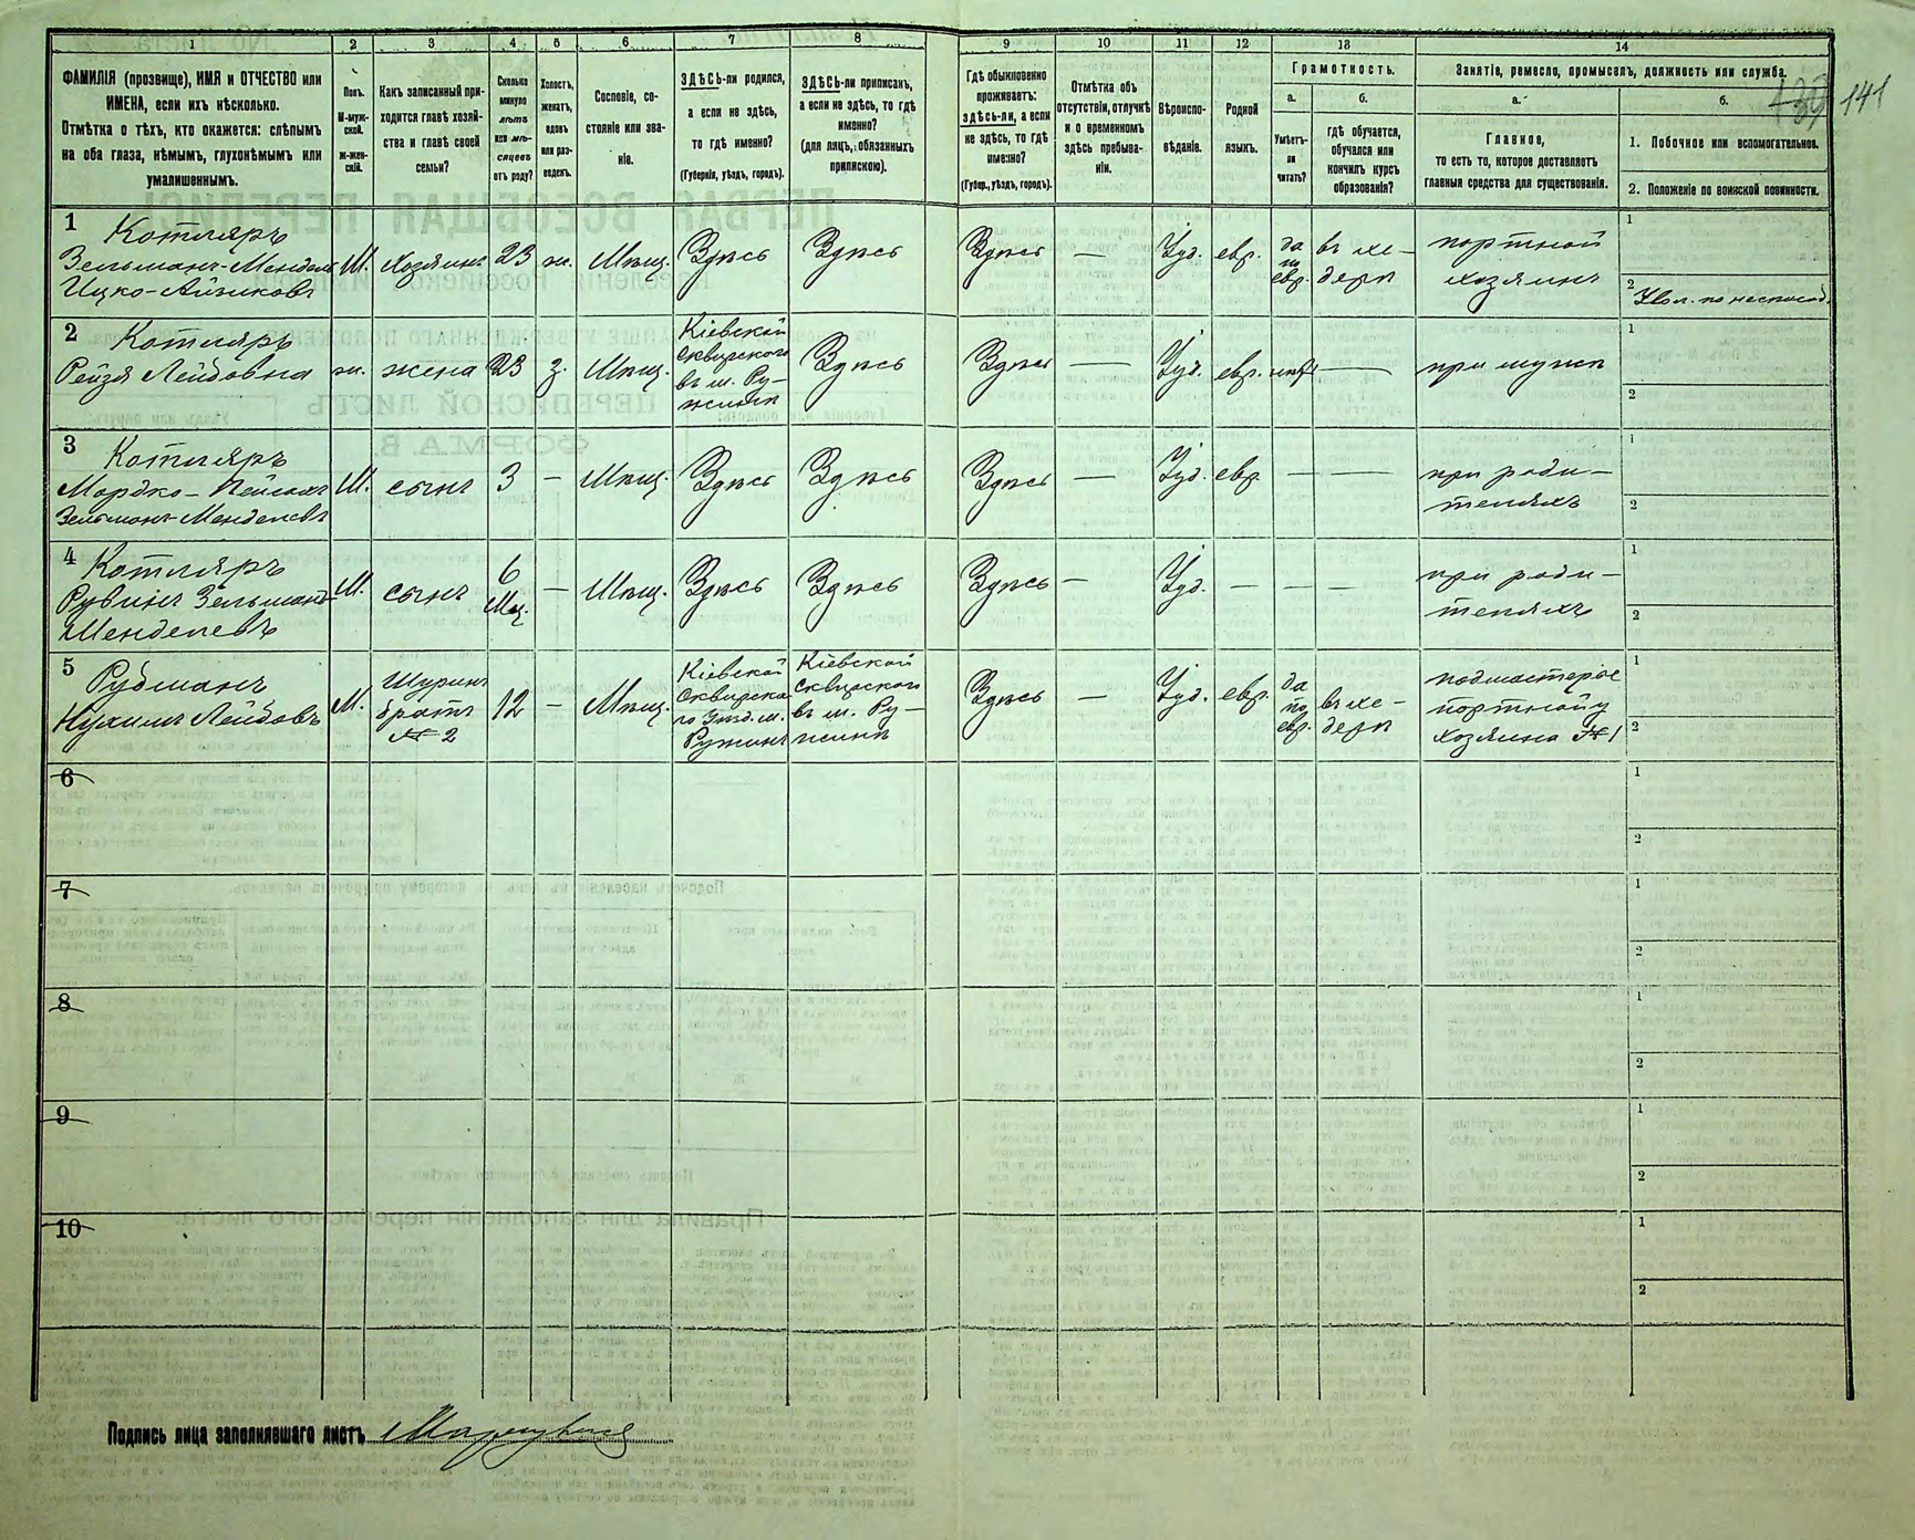 1 2 3 4 5 6 7 8 9 10 11 12 13 14
ФАМИЛІЯ (прозвище), ИМЯ и ОТЧЕСТВО или
ИМЕНА, если ихъ нѣсколько.
Отмѣтка о тѣхъ, кто окажется: слѣпымъ
на оба глаза, нѣмымъ, глухонѣмымъ или
умалишеннымъ.
Полъ.
М-муж-
ской.
Ж-жен-
скій.
Какъ записанный при-
ходится главѣ хозяй-
ства и главѣ своей
семьи?
Сколько
минуло
лѣтъ
или мѣ-
сяцевъ
отъ роду?
Холостъ,
женатъ,
вдовъ
или раз-
веденъ.
Сословіе, со-
стояніе или зва-
ніе.
ЗДѢСЬ-ли родился,
а если не здѣсь,
то гдѣ именно?
(Губернія, уѣздъ, городъ).
ЗДѢСЬ-ли приписанъ,
а если не здѣсь, то гдѣ
именно?
(для лицъ, обязанныхъ
припискою).
Гдѣ обыкновенно
проживаетъ:
здѣсь-ли, а если
не здѣсь, то гдѣ
именно?
(Губер., уѣздъ, городъ).
Отмѣтка объ
отсутствіи, отлучкѣ
и о временномъ
здѣсь пребыва-
ніи.
Вѣроиспо-
вѣданіе.
Родной
языкъ.
Грамотность.
а.
Умѣетъ-
ли
читать?
б.
гдѣ обучается,
обучался или
кончилъ курсъ
образованія?
Занятіе, ремесло, промыселъ, должность или служба.
а.
Главное,
то есть то, которое доставляетъ
главныя средства для существованія.
б.
1. Побочное или вспомогательное.
2. Положеніе по воинской повинности.
141
1
Котляръ
Зельманъ-Мендель
Ицко-Айзиковъ
М.
хозяинъ
23
ж.
Мѣщ.
Здѣсь
Здѣсь
Здѣсь
—
Іуд.
евр.
да
по
евр.
въ хе-
дерѣ
портной
хозяинъ
1
2
Увол. по неспособ.
2
Котляръ
Рейзя Лейбовна
ж.
жена
23
з.
Мѣщ.
Кіевской
Сквирскаго
въ м. Ру-
жинѣ
Здѣсь
Здѣсь
—
Іуд.
евр.
нѣтъ
—
при мужѣ
1
2
3
Котляръ
Мордко-Пейсахъ
Зельманъ-Менделевъ
М.
сынъ
3
—
Мѣщ.
Здѣсь
Здѣсь
Здѣсь
—
Іуд.
евр.
—
—
при роди-
теляхъ
1
2
4
Котляръ
Рувинъ Зельманъ-
Менделевъ
М.
сынъ
6
Мц.
—
Мѣщ.
Здѣсь
Здѣсь
Здѣсь
—
Іуд.
—
—
—
при роди-
теляхъ
1
2
5
Рубманъ
Нухимъ Лейбовъ
М.
Шуринъ
братъ
№ 2
12
—
Мѣщ.
Кіевской
Сквирска-
го Уѣзд. м.
Ружинъ
Кіевской
Сквирскаго
въ м. Ру-
жинѣ
Здѣсь
—
Іуд.
евр.
да
по
евр.
въ хе-
дерѣ
подмастерье
портной у
хозяина № 1
1
2
6
1
2
7
1
2
8
1
2
9
1
2
10
1
2
Подпись лица заполнявшаго листъ